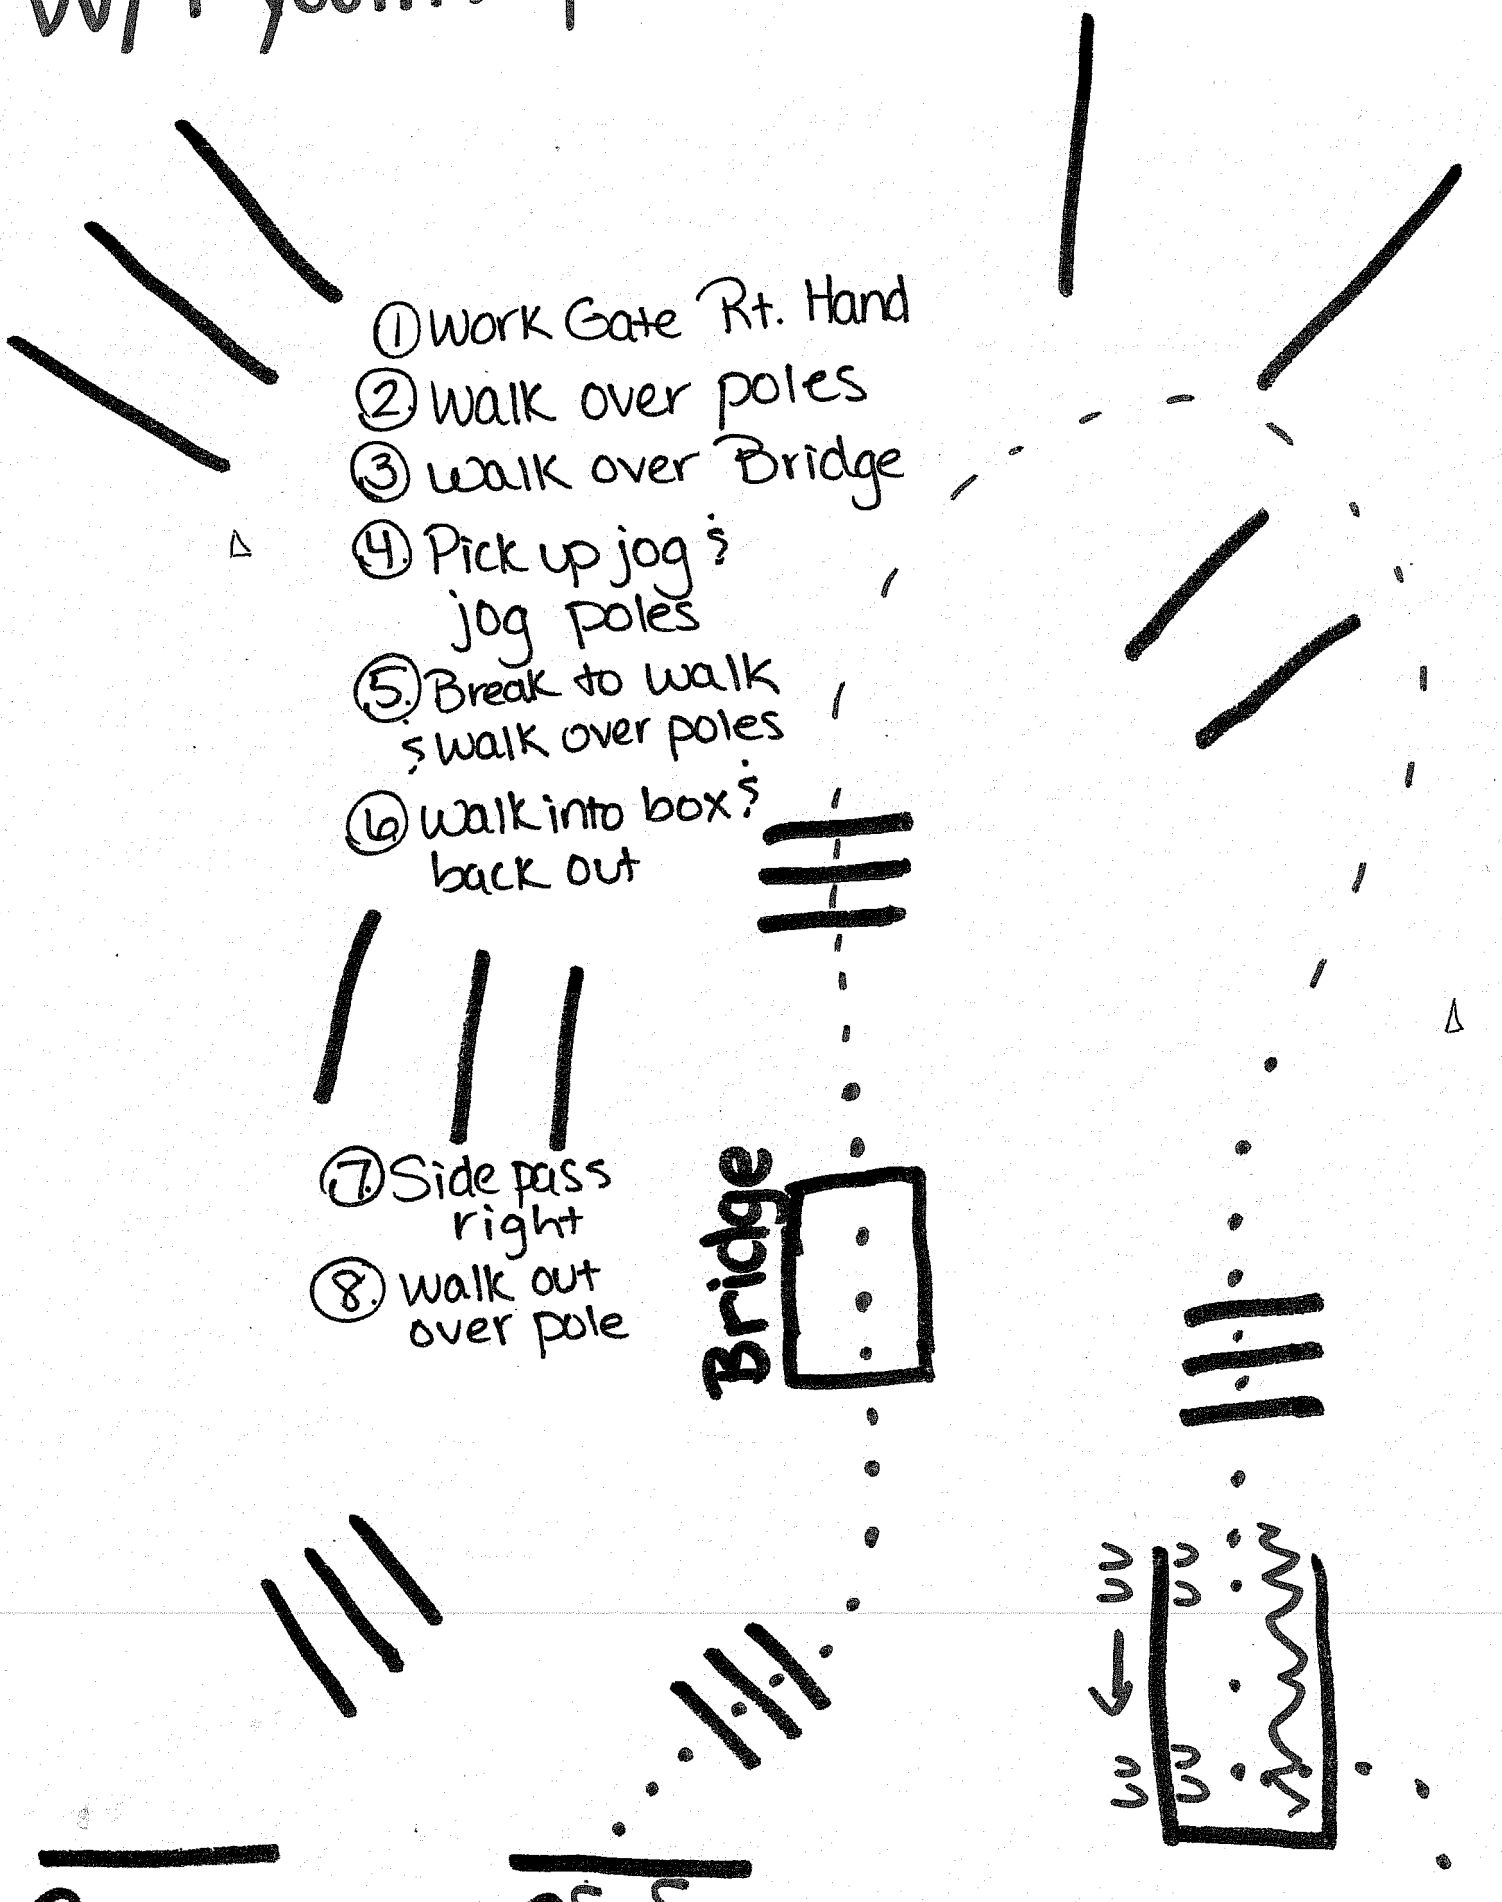 ① Work Gate Rt. Hand
② Walk over poles
③ Walk over Bridge
④ Pick up jog &
jog poles
⑤ Break to walk
& walk over poles
⑥ Walk into box &
back out
⑦ Side pass
right
⑧ Walk out
over pole
Bridge